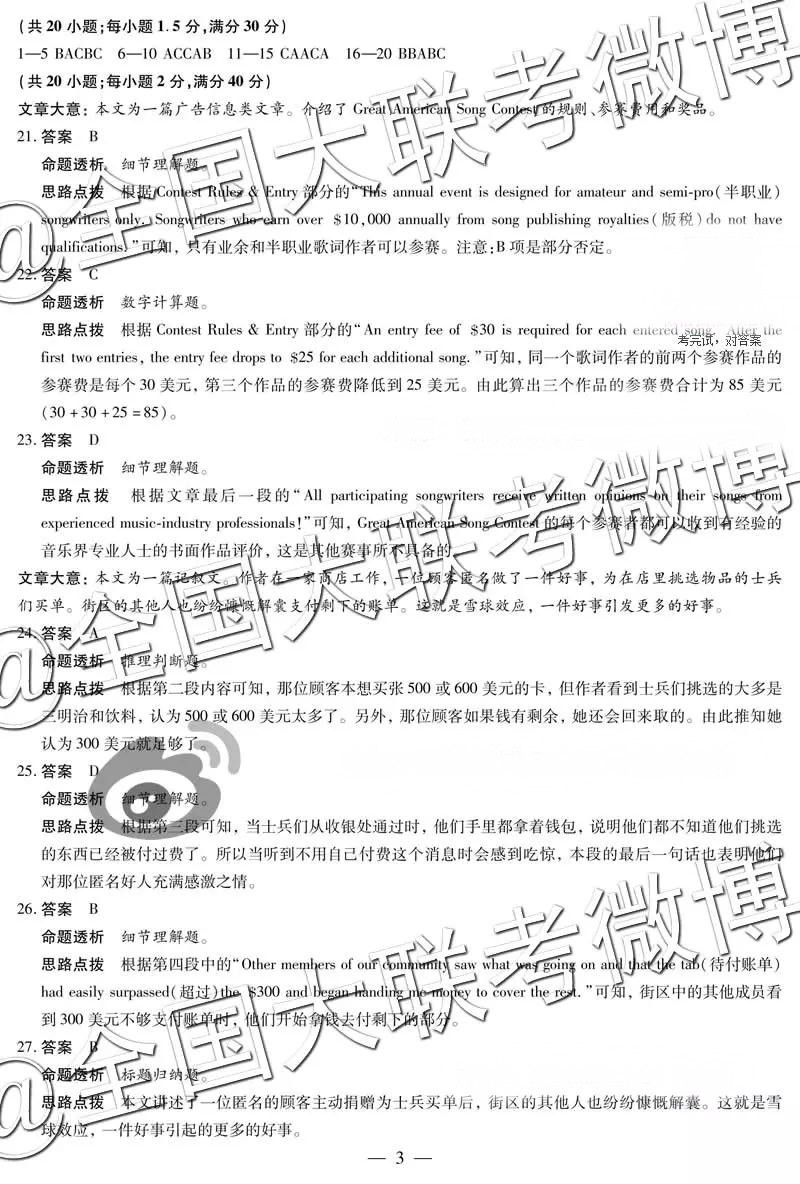 (共 20 小题;每小题 1.5 分,满分 30 分)
1—5 BACBC 6—10 ACCAB 11—15 CAACA 16—20 BBABC
(共 20 小题;每小题 2 分,满分 40 分)
文章大意：本文为一篇广告信息类文章。介绍了 Great American Song Contest 的规则、参赛费用和奖品。
21. 答案 B
命题透析 细节理解题。
思路点拨 根据 Contest Rules & Entry 部分的“This annual event is designed for amateur and semi-pro(半职业)
songwriters only. Songwriters who earn over $10,000 annually from song publishing royalties(版税) do not have
qualifications.”可知，只有业余和半职业歌词作者可以参赛。注意:B 项是部分否定。
22. 答案 C
命题透析 数字计算题。
思路点拨 根据 Contest Rules & Entry 部分的“An entry fee of $30 is required for each entered song. After the
考完试，对答案
first two entries, the entry fee drops to $25 for each additional song.”可知，同一个歌词作者的前两个参赛作品的
参赛费是每个 30 美元，第三个作品的参赛费降低到 25 美元。由此算出三个作品的参赛费合计为 85 美元
(30+30+25=85)。
23. 答案 D
命题透析 细节理解题。
思路点拨 根据文章最后一段的“All participating songwriters receive written opinions on their songs from
experienced music-industry professionals!”可知，Great American Song Contest 的每个参赛者都可以收到有经验的
音乐界专业人士的书面作品评价，这是其他赛事所不具备的。
文章大意：本文为一篇记叙文。作者在一家商店工作，一位顾客匿名做了一件好事，为在店里挑选物品的士兵
们买单。街区的其他人也纷纷慷慨解囊支付剩下的账单。这就是雪球效应，一件好事引发更多的好事。
24. 答案 A
命题透析 推理判断题。
思路点拨 根据第二段内容可知，那位顾客本想买张 500 或 600 美元的卡，但作者看到士兵们挑选的大多是
三明治和饮料，认为 500 或 600 美元太多了。另外，那位顾客如果钱有剩余，她还会回来取的。由此推知她
认为 300 美元就足够了。
25. 答案 D
命题透析 细节理解题。
思路点拨 根据第三段可知，当士兵们从收银处通过时，他们手里都拿着钱包，说明他们都不知道他们挑选
的东西已经被付过费了。所以当听到不用自己付费这个消息时会感到吃惊，本段的最后一句话也表明他们
对那位匿名好人充满感激之情。
26. 答案 B
命题透析 细节理解题。
思路点拨 根据第四段中的“Other members of our community saw what was going on and that the tab(待付账单)
had easily surpassed(超过)the $300 and began handing me money to cover the rest.”可知，街区中的其他成员看
到 300 美元不够支付账单时，他们开始拿钱去付剩下的部分。
27. 答案 B
命题透析 标题归纳题。
思路点拨 本文讲述了一位匿名的顾客主动捐赠为士兵买单后，街区的其他人也纷纷慷慨解囊。这就是雪
球效应，一件好事引起的更多的好事。
— 3 —
@全国大联考微博
@全国大联考微博
@全国大联考微博